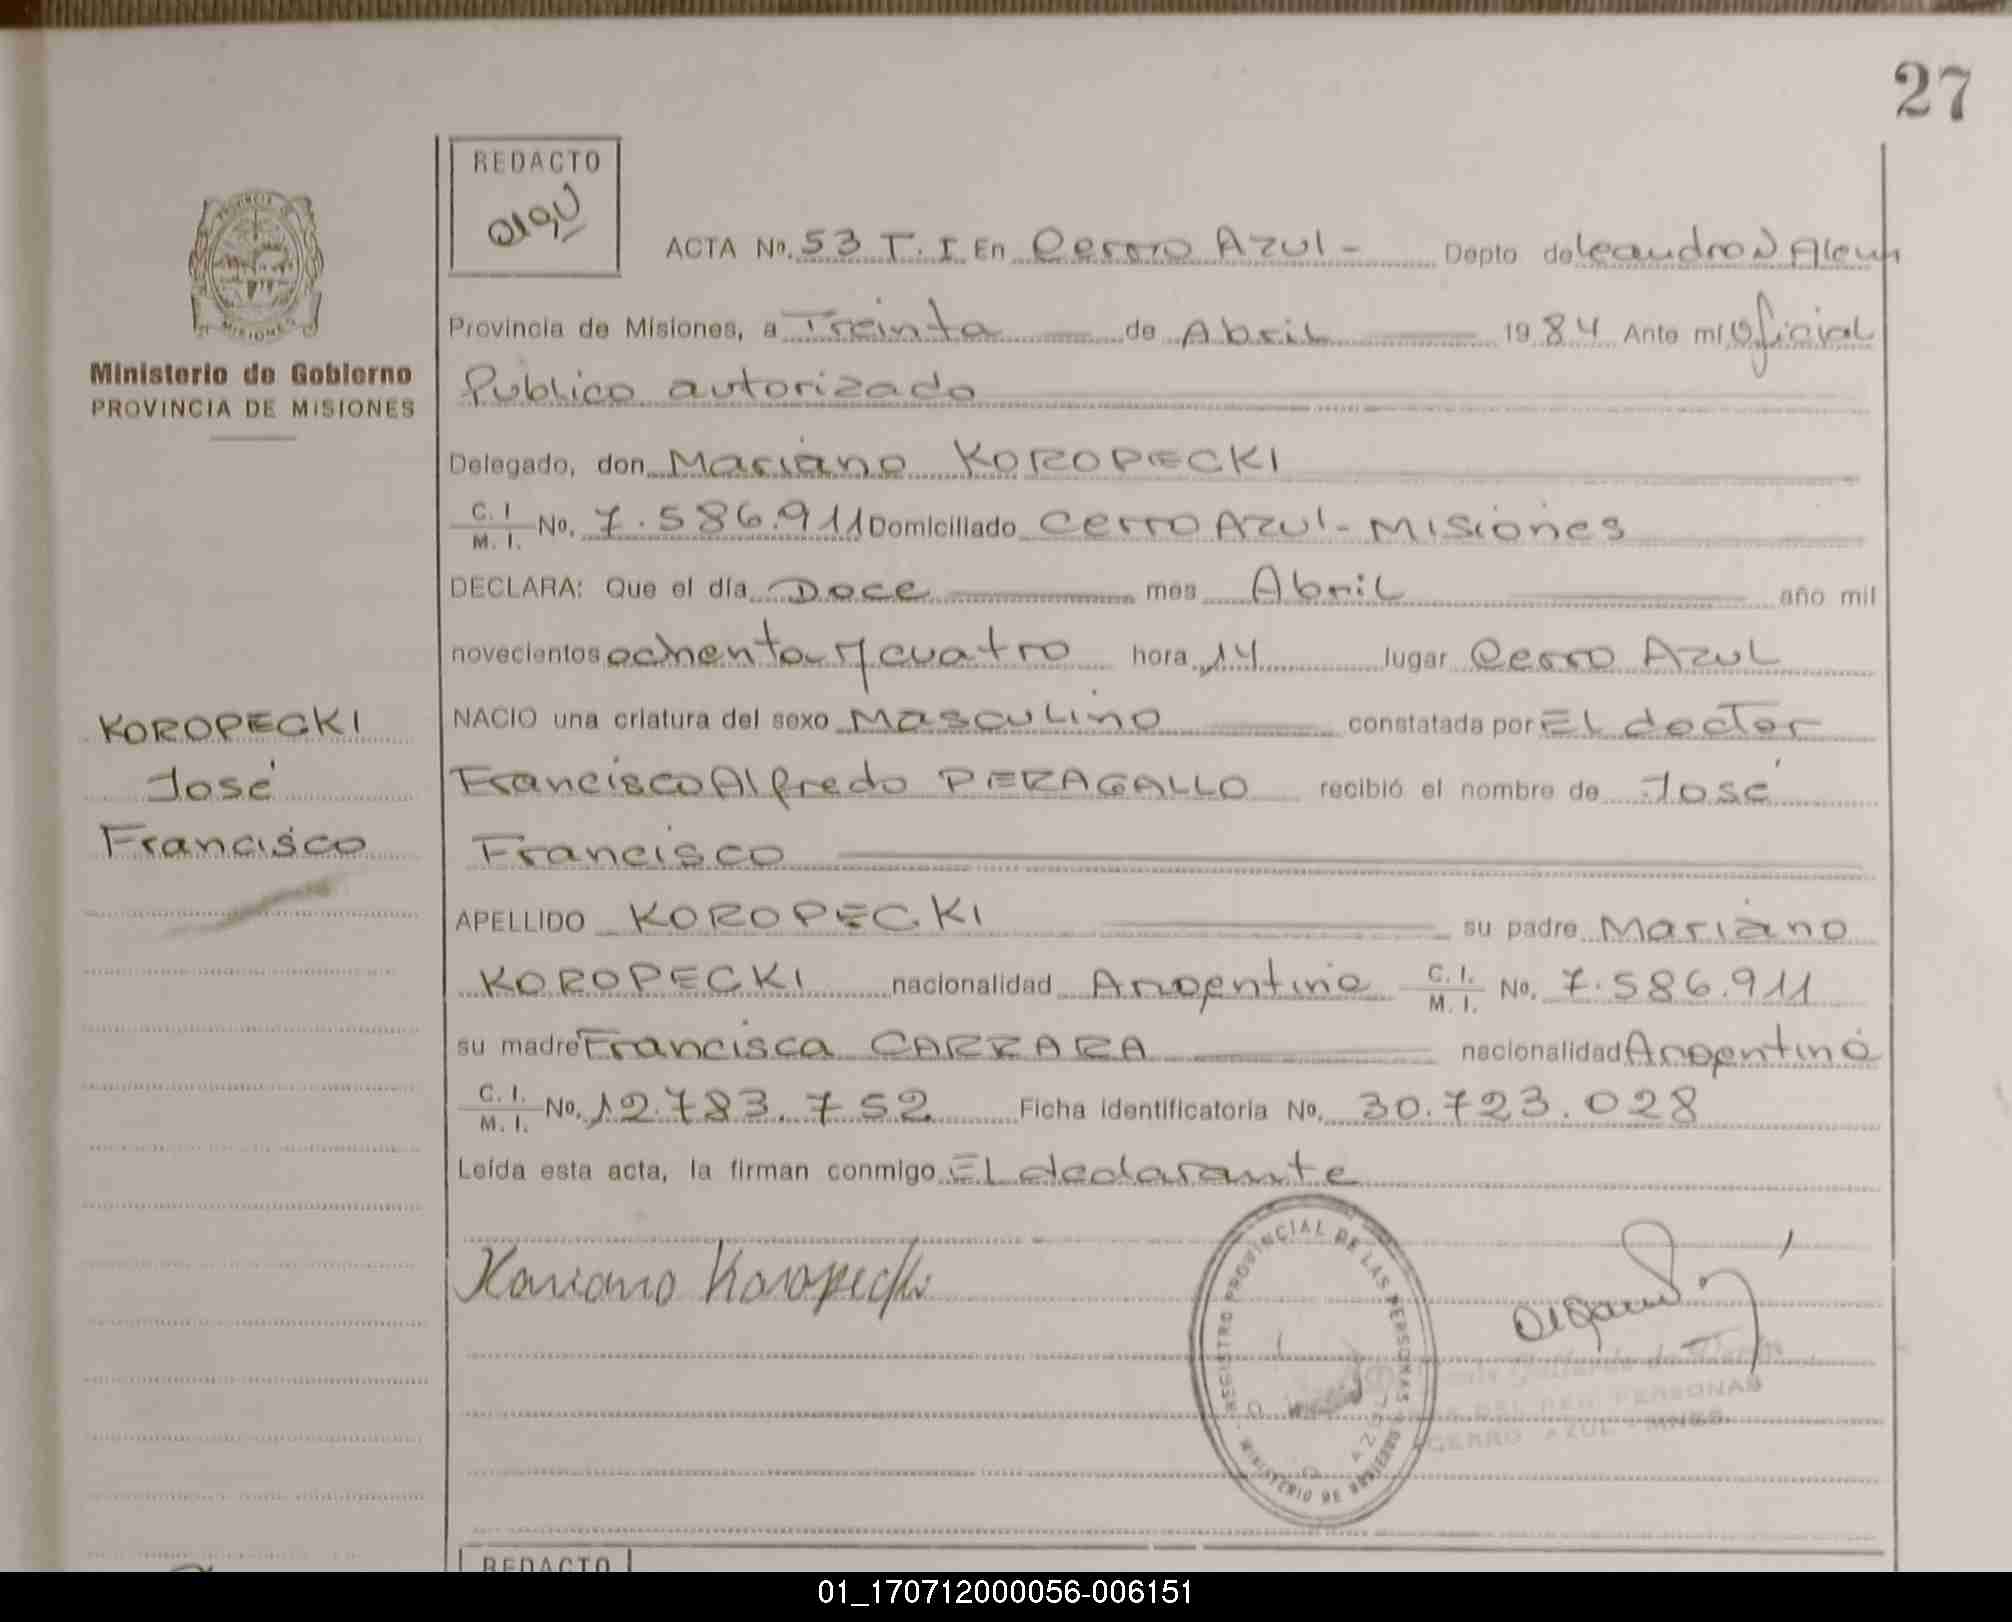 27
REDACTO
ACTA No. 53 T. I En Cerro Azul - Depto de Leandro N Alem
Provincia de Misiones, a Treinta de Abril 1984 Ante mí Oficial
Público autorizado
Ministerio de Gobierno
PROVINCIA DE MISIONES
Delegado, don Mariano KOROPECKI
C. I. / M. I. No. 7.586.911 Domiciliado Cerro Azul - Misiones
DECLARA: Que el día Doce mes Abril año mil
novecientos ochenta y cuatro hora 14 lugar Cerro Azul
KOROPECKI
José
Francisco
NACIO una criatura del sexo Masculino constatada por El doctor
Francisco Alfredo PERAGALLO recibió el nombre de José
Francisco
APELLIDO KOROPECKI su padre Mariano
KOROPECKI nacionalidad Argentina C. I. / M. I. No. 7.586.911
su madre Francisca CARRARA nacionalidad Argentina
C. I. / M. I. No. 12.783.752 Ficha identificatoria No. 30.723.028
Leída esta acta, la firman conmigo El declarante
Mariano Koropecki
REGISTRO PROVINCIAL DE LAS PERSONAS
MINISTERIO DE GOBIERNO
DEL REG. PERSONAS
CERRO AZUL - MNES.
REDACTO
01_170712000056-006151